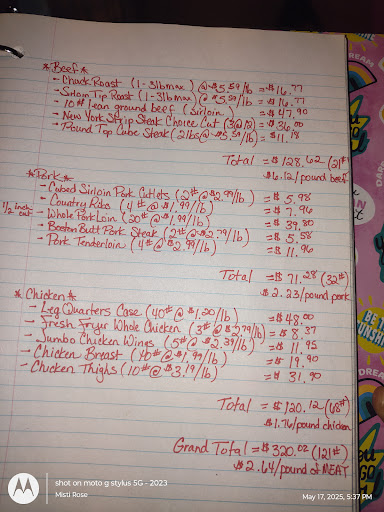 *Beef*
- Chuck Roast (1-3lb max) @ $5.59/lb = $16.77
- Sirloin Tip Roast (1-3lb max) @ $5.59/lb = $16.77
- 10# lean ground beef (sirloin) = $47.90
- New York Strip Steak Choice Cut (3@12) = $36.00
- Pound Top Cube Steak (2lbs @ $5.59/lb) = $11.18
Total = $128.62 (21#)
$6.12/pound beef
*Pork*
- Cubed Sirloin Pork Cutlets (2# @ $2.99/lb) = $5.98
- Country Ribs (4# @ $1.99/lb) = $7.96
1/2 inch cut - Whole Pork Loin (20# @ $1.99/lb) = $39.80
- Boston Butt Pork Steak (2# @ $2.79/lb) = $5.58
- Pork Tenderloin (4# @ $2.99/lb) = $11.96
Total = $71.28 (32#)
$2.23/pound pork
*Chicken*
- Leg Quarters Case (40# @ $1.20/lb) = $48.00
- Fresh Fryer Whole Chicken (3# @ $2.79/lb) = $8.37
- Jumbo Chicken Wings (5# @ $2.39/lb) = $11.95
- Chicken Breast (10# @ $1.99/lb) = $19.90
- Chicken Thighs (10# @ $3.19/lb) = $31.90
Total = $120.12 (68#)
$1.76/pound chicken
Grand Total = $320.02 (121#)
$2.64/pound of MEAT
DREAM
BE THE
SUNSHINE
DREAM
shot on moto g stylus 5G - 2023
Misti Rose
May 17, 2025, 5:37 PM